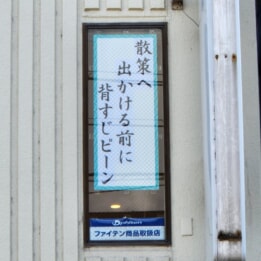 散策へ
出かける前に
背すじピーン
ファイテン商品取扱店